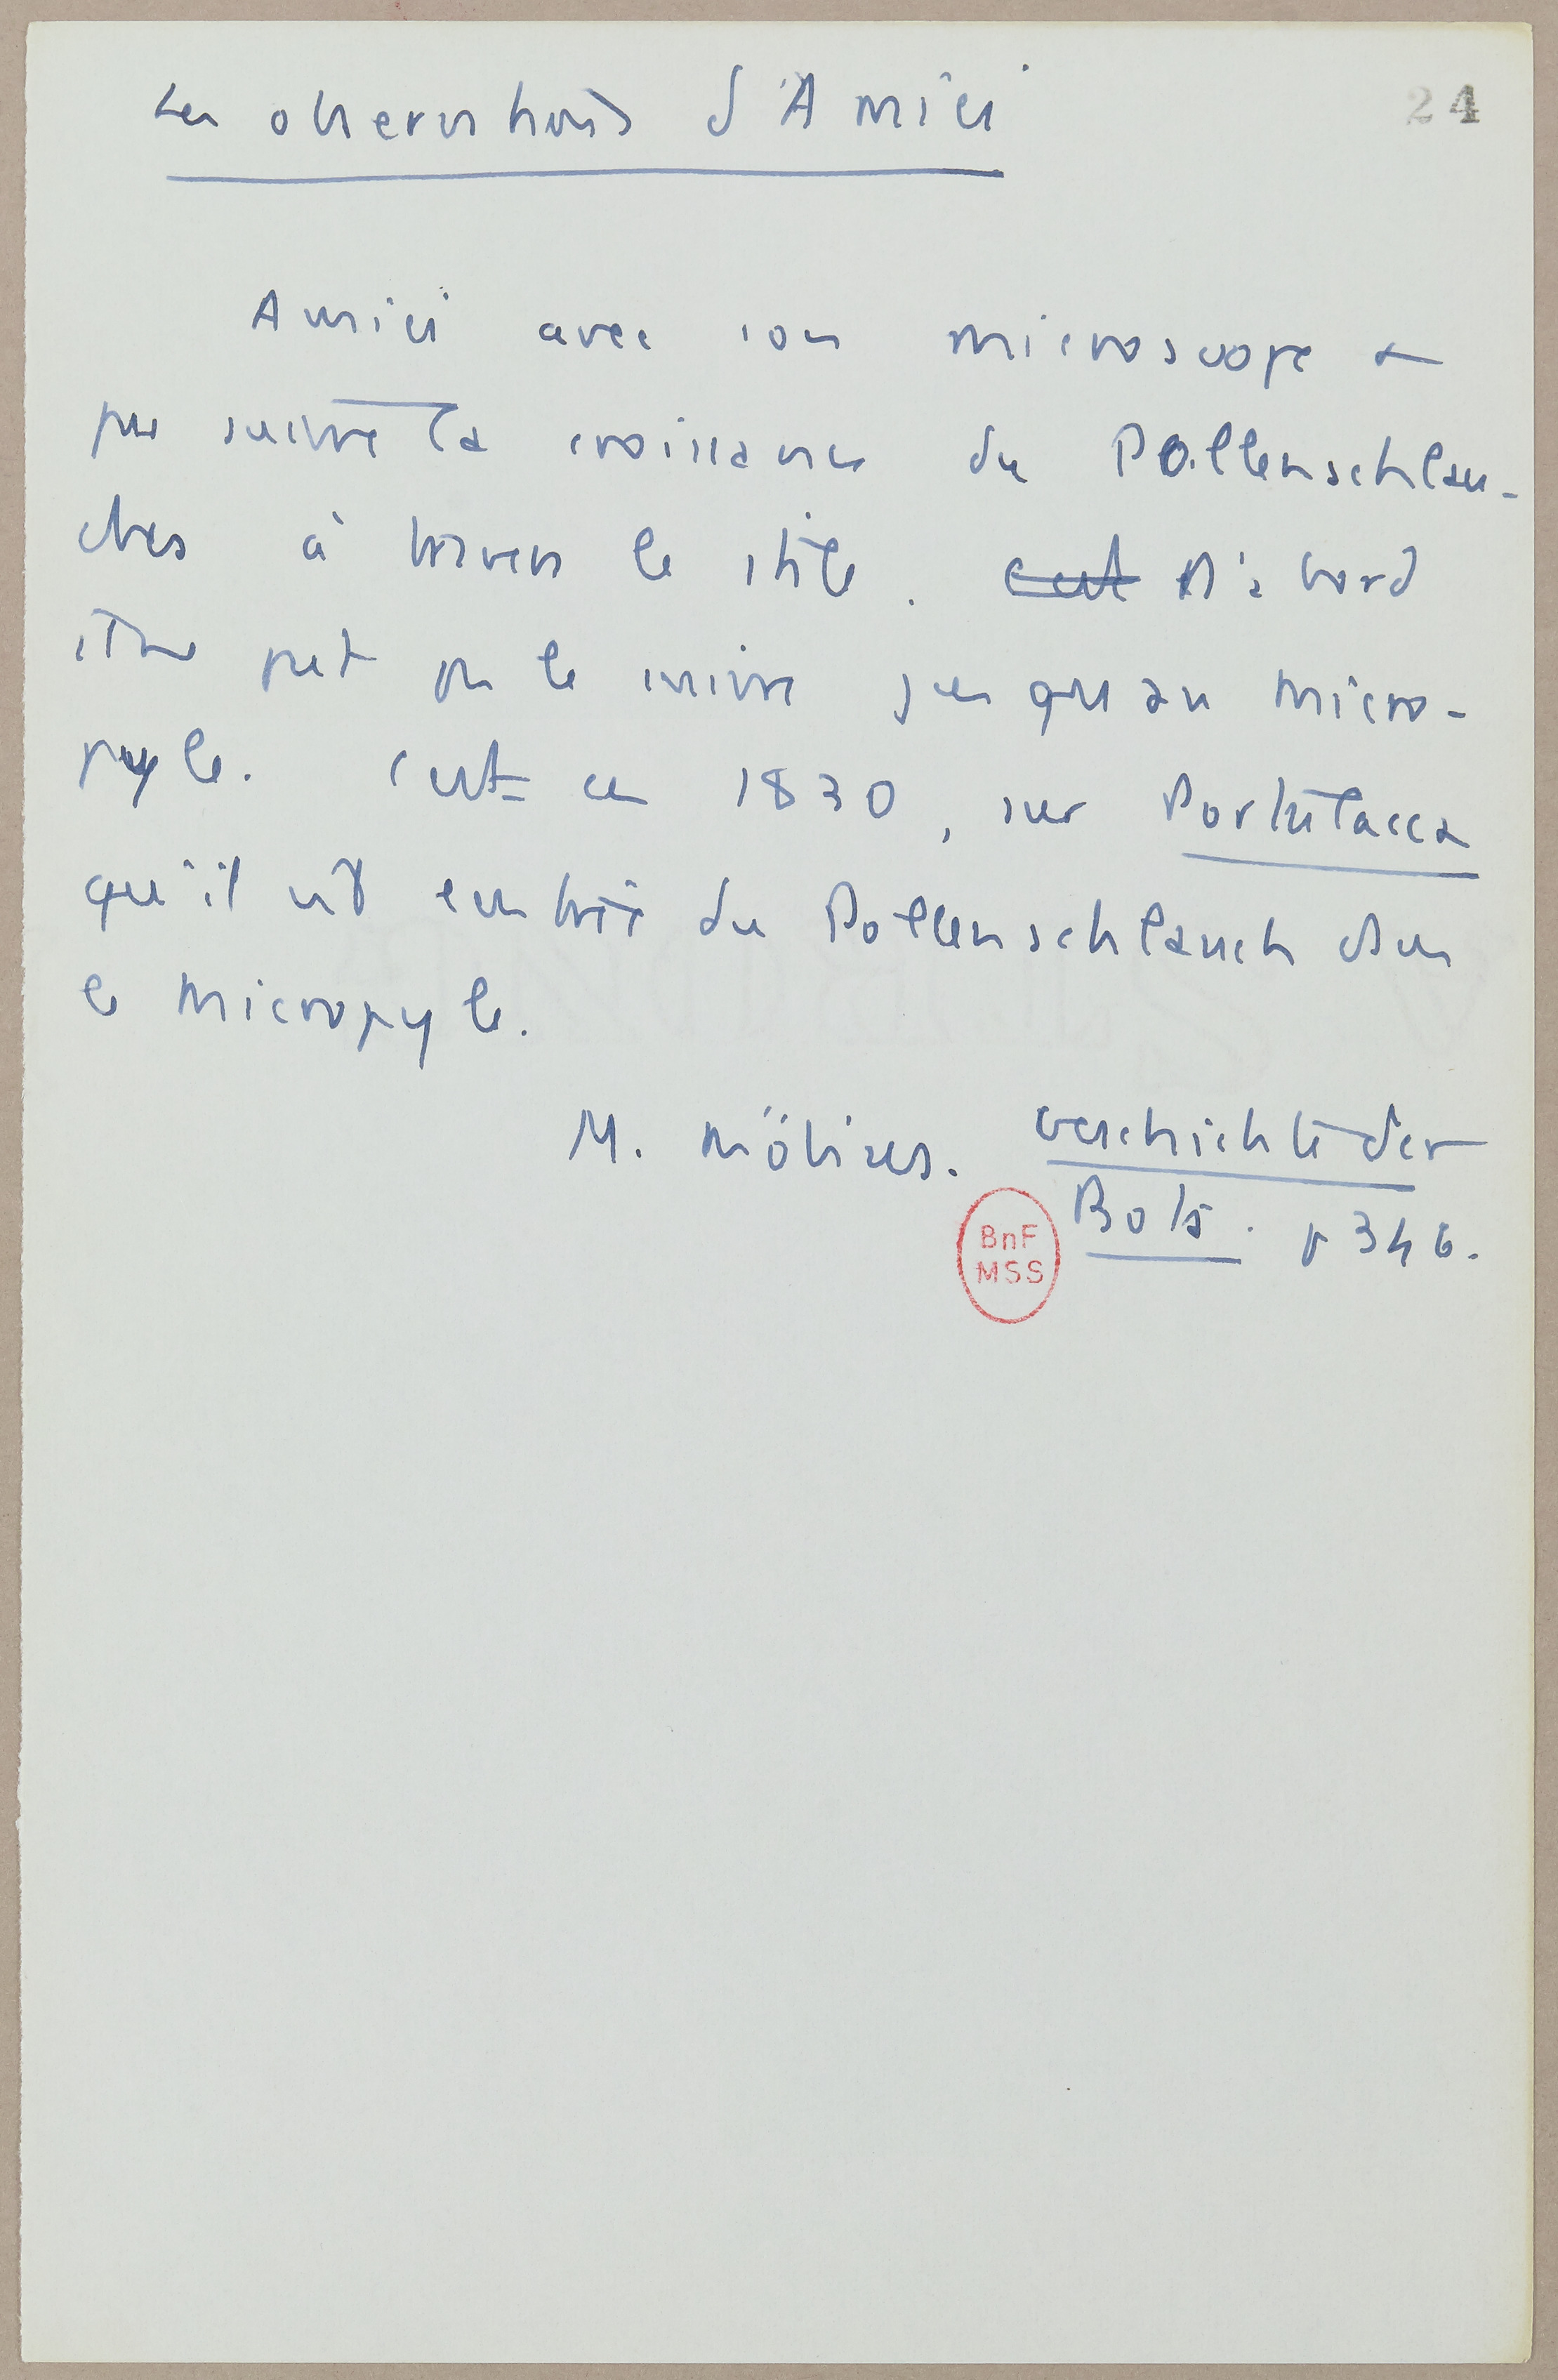 Les observations d'Amici
24
Amici avec son microscope a
pu suivre la croissance du Pollenschlau-
ches à travers le stile. D'abord
il ne put pas le suivre jusqu'au micro-
pyle. C'est en 1830, sur Portulacca
qu'il vit entrée du Pollenschlauch dans
le micropyle.
M. Möbius. Geschichte der
Bota. p 346.
BnF
MSS